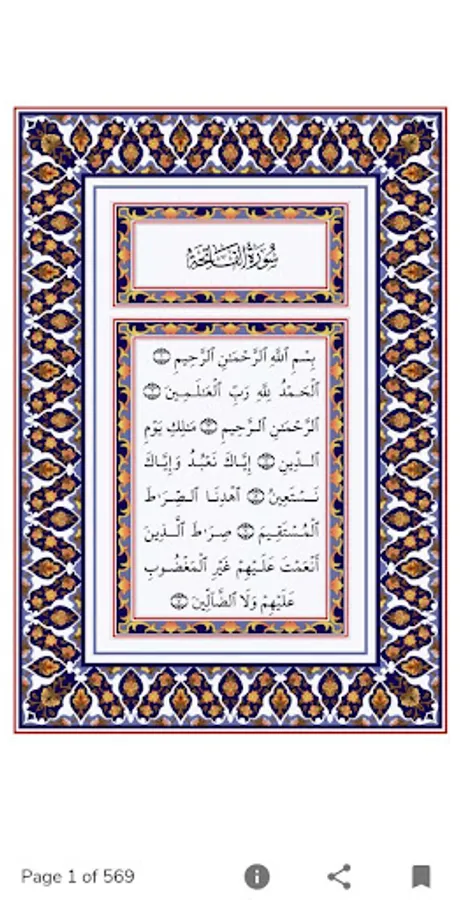 سُورَةُ الْفَاتِحَةِ
بِسْمِ ٱللَّهِ ٱلرَّحْمَـٰنِ ٱلرَّحِيمِ ۝
ٱلْحَمْدُ لِلَّهِ رَبِّ ٱلْعَـٰلَمِينَ ۝
ٱلرَّحْمَـٰنِ ٱلرَّحِيمِ ۝ مَـٰلِكِ يَوْمِ
ٱلدِّينِ ۝ إِيَّاكَ نَعْبُدُ وَإِيَّاكَ
نَسْتَعِينُ ۝ ٱهْدِنَا ٱلصِّرَٰطَ
ٱلْمُسْتَقِيمَ ۝ صِرَٰطَ ٱلَّذِينَ
أَنْعَمْتَ عَلَيْهِمْ غَيْرِ ٱلْمَغْضُوبِ
عَلَيْهِمْ وَلَا ٱلضَّآلِّينَ ۝
Page 1 of 569